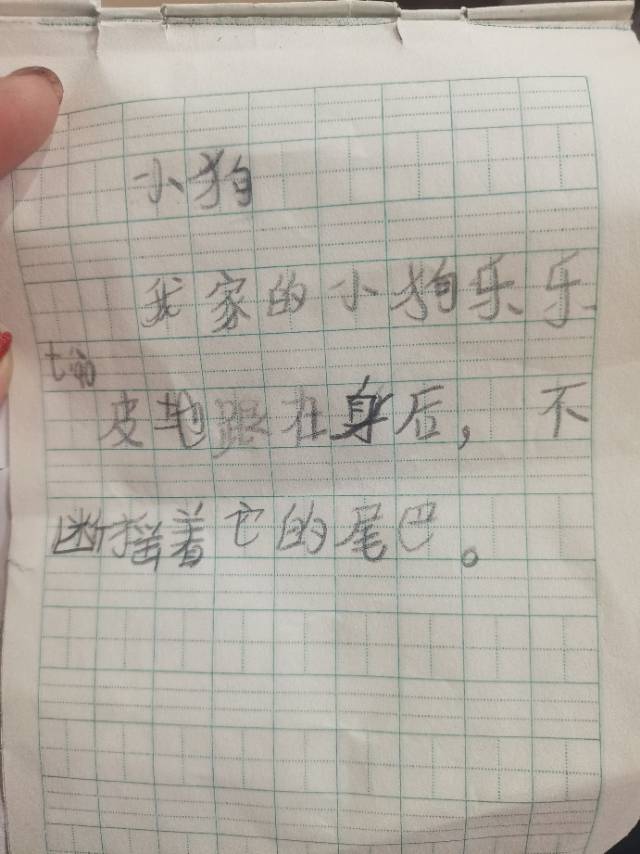 小狗
我家的小狗乐乐
tiáo
皮地跟在身后，不
断摇着它的尾巴。